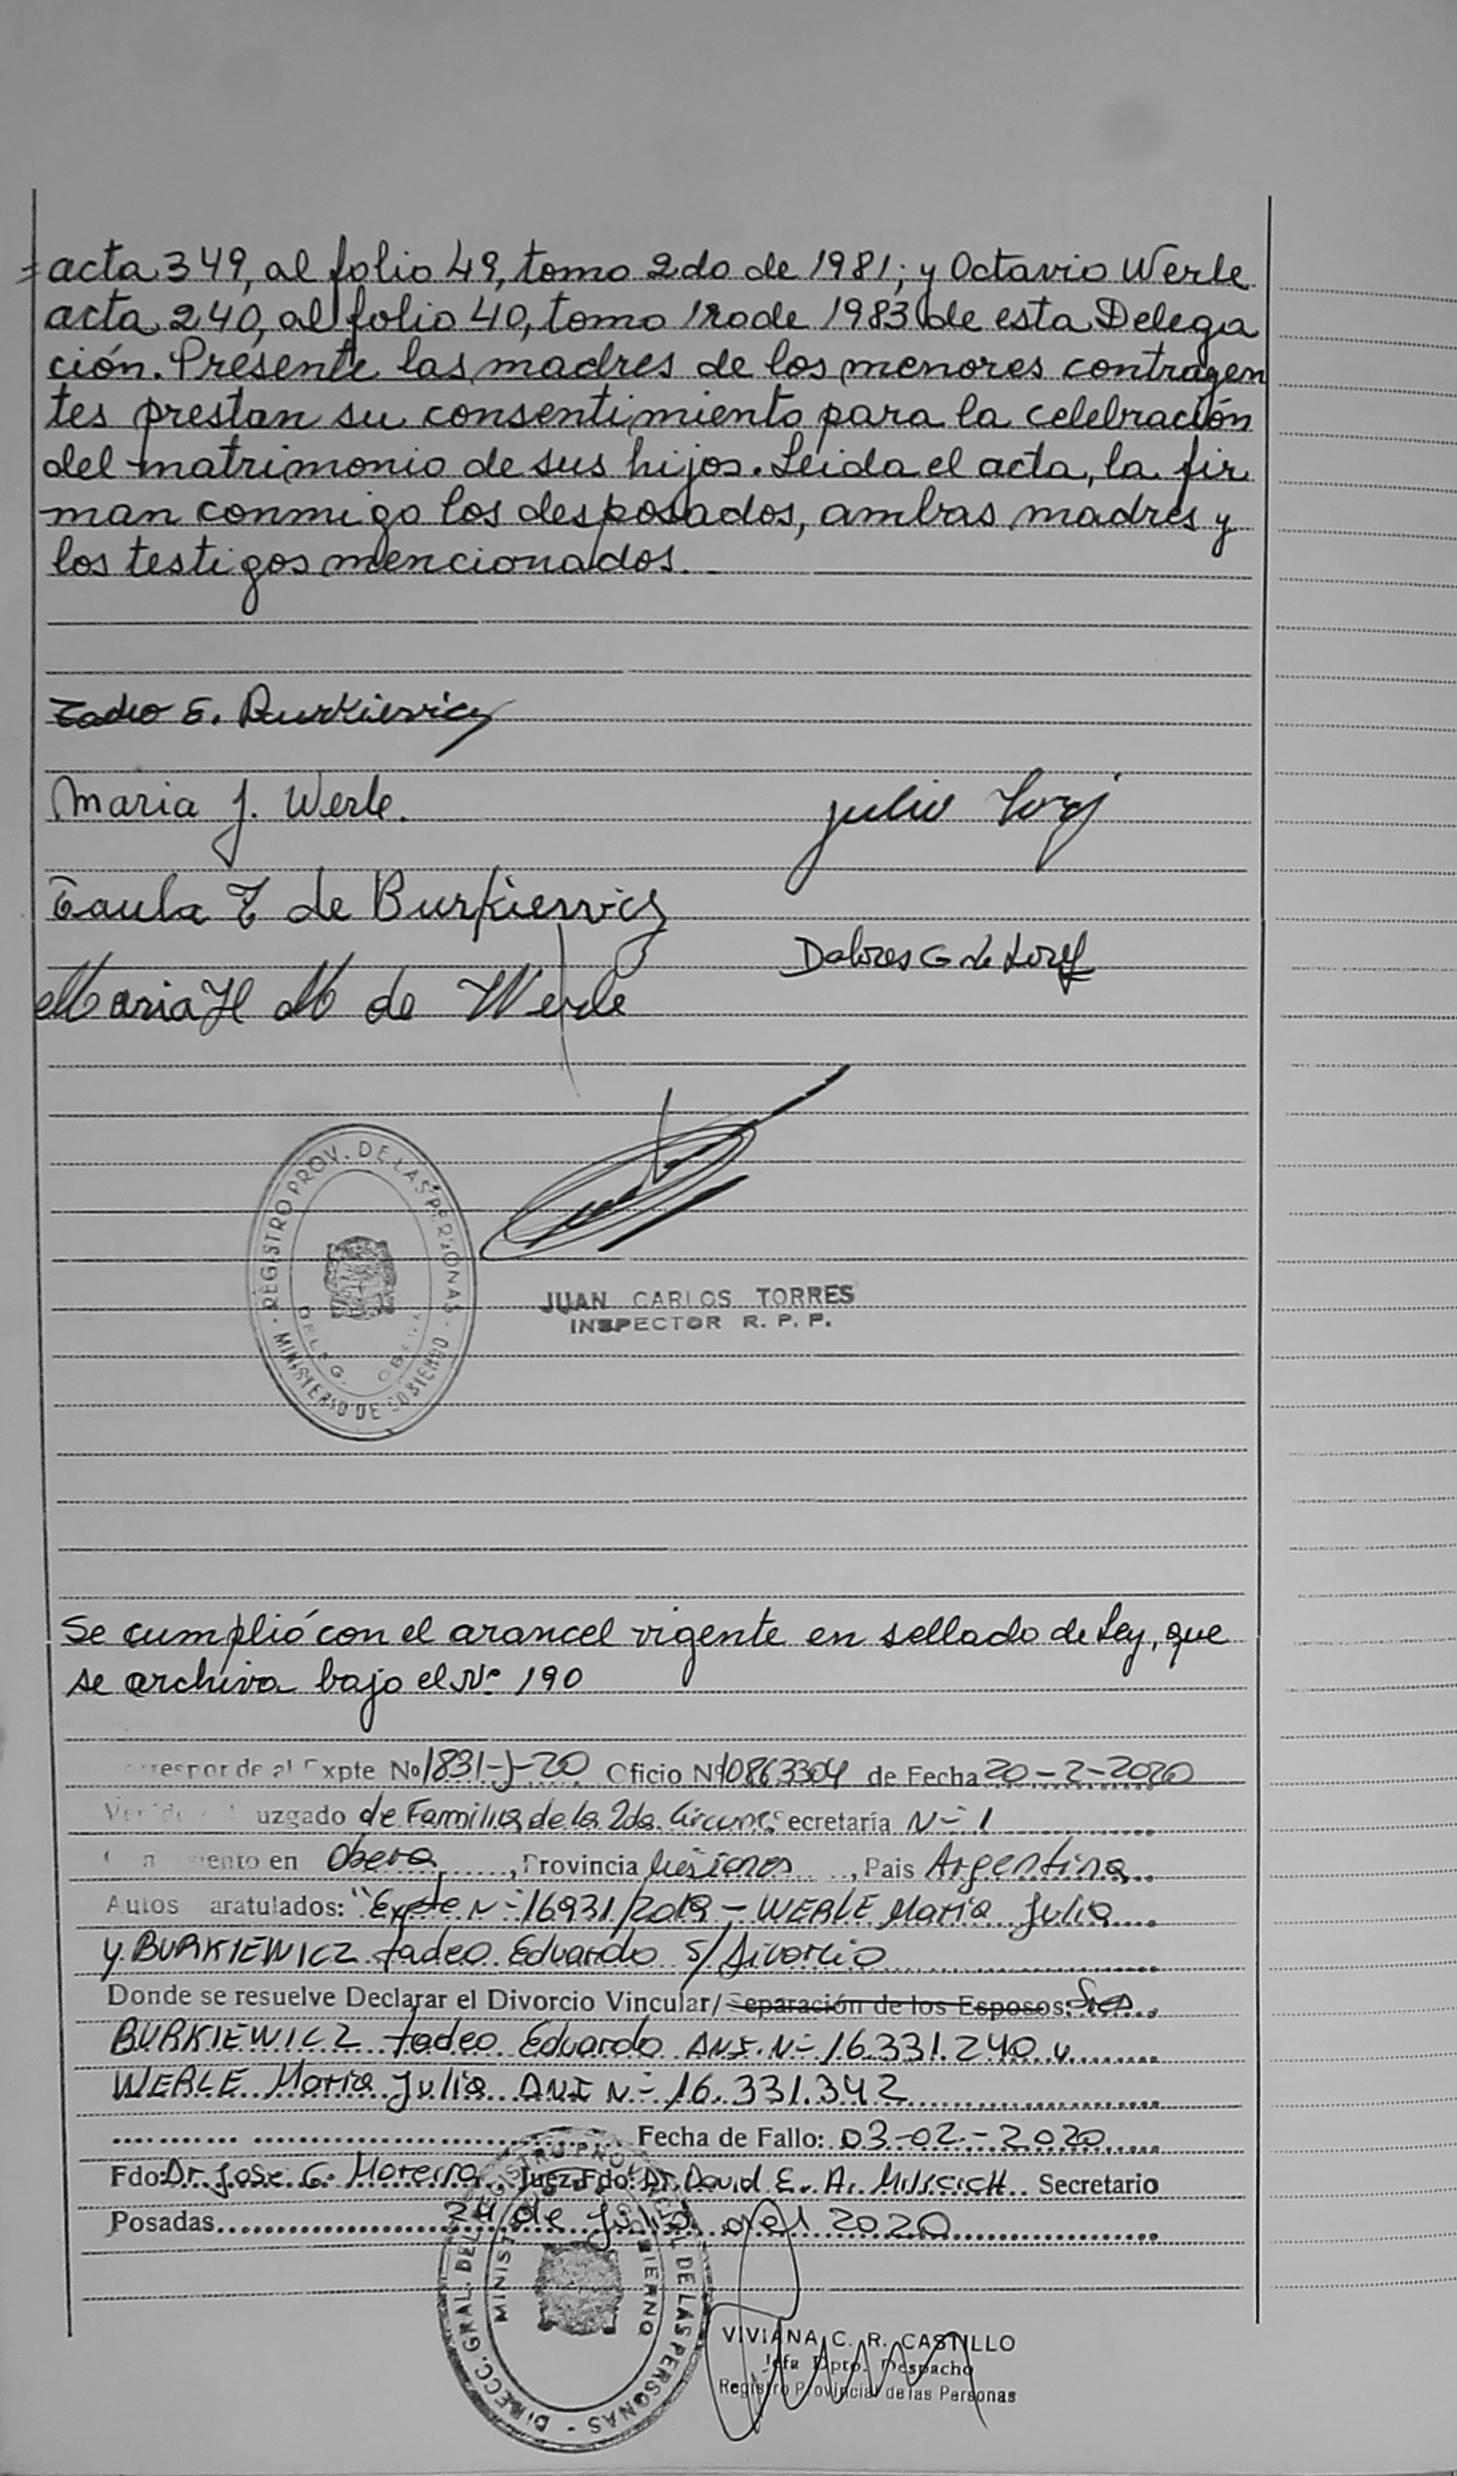 acta 349, al folio 49, tomo 2do de 1981; y Octavio Werle
acta 240, al folio 40, tomo 1ro de 1983 de esta Delega
ción. Presente las madres de los menores contrayen
tes prestan su consentimiento para la celebración
del matrimonio de sus hijos. Leida el acta, la fir
man conmigo los desposados, ambas madres y
los testigos mencionados.
Tadeo E. Burkievicz
Maria J. Werle.
Julio
Paula T de Burkievicz
Dolores G de
Maria H M de Werle
REGISTRO PROV. DE LAS PERSONAS - MINISTERIO DE GOBIERNO
DELEG. OBERA
JUAN CARLOS TORRES
INSPECTOR R. P. P.
Se cumplió con el arancel vigente en sellado de Ley, que
se archiva bajo el Nº 190
al Expte No 1831-J-20 Oficio Nº 10863304 de Fecha 20-2-2020
uzgado de Familia de la 2da. Circunc. Secretaría Nº 1
ento en Obera, Provincia Misiones, Pais Argentina
Autos aratulados: "Expte Nº 16931/2019 - WERLE Maria Julia
y BURKIEWICZ tadeo Eduardo S/ Divorcio
Donde se resuelve Declarar el Divorcio Vincular/Separación de los Esposos: Sres.
BURKIEWICZ tadeo Eduardo DNI. Nº 16.331.240 y
WERLE Maria Julia DNI Nº 16.331.342
Fecha de Fallo: 03-02-2020
Fdo: Dr. Jose G. Moreira Juez Fdo: Dr. David E. A. Secretario
Posadas 24 de Julio del 2020
DIRECC. GRAL. DEL REGISTRO PROVINCIAL DE LAS PERSONAS
MINISTERIO DE GOBIERNO
VIVIANA C. R. CASTILLO
Jefa Dpto. Despacho
Registro Provincial de las Personas